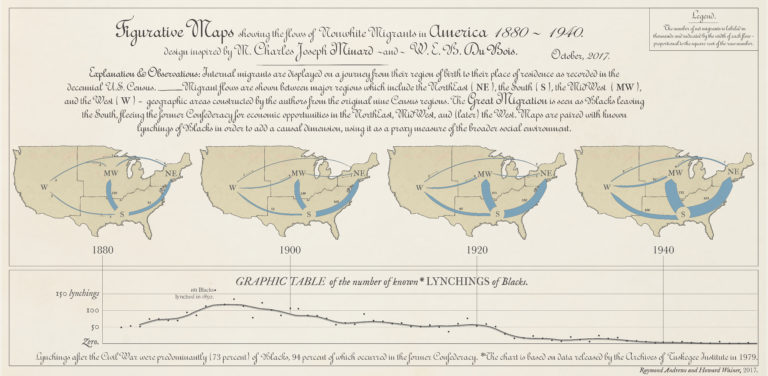 Figurative Maps showing the flows of Nonwhite Migrants in America 1880 ~ 1940.
design inspired by M. Charles Joseph Minard ~and~ W. E. B. Du Bois.
October, 2017.
Legend.
The number of net migrants is labeled in
thousands and indicated by the width of each flow -
proportional to the square root of the raw number.
Explanation & Observations: Internal migrants are displayed on a journey from their region of birth to their place of residence as recorded in the
decennial U.S. Census. Migrant flows are shown between major regions which include the NorthEast (NE), the South (S), the MidWest (MW),
and the West (W) - geographic areas constructed by the authors from the original nine Census regions. The Great Migration is seen as Blacks leaving
the South, fleeing the former Confederacy for economic opportunities in the NorthEast, MidWest, and (later) the West. Maps are paired with known
lynchings of Blacks in order to add a causal dimension, using it as a proxy measure of the broader social environment.
W MW NE S
W MW NE S
W MW NE S
W MW NE S
1880 1900 1920 1940
GRAPHIC TABLE of the number of known* LYNCHINGS of Blacks.
150 lynchings
161 Blacks
lynched in 1892.
100
50
Zero.
Lynchings after the Civil War were predominantly (73 percent) of Blacks, 94 percent of which occurred in the former Confederacy. *The chart is based on data released by the Archives of Tuskegee Institute in 1979.
Raymond Andrews and Howard Wainer, 2017.